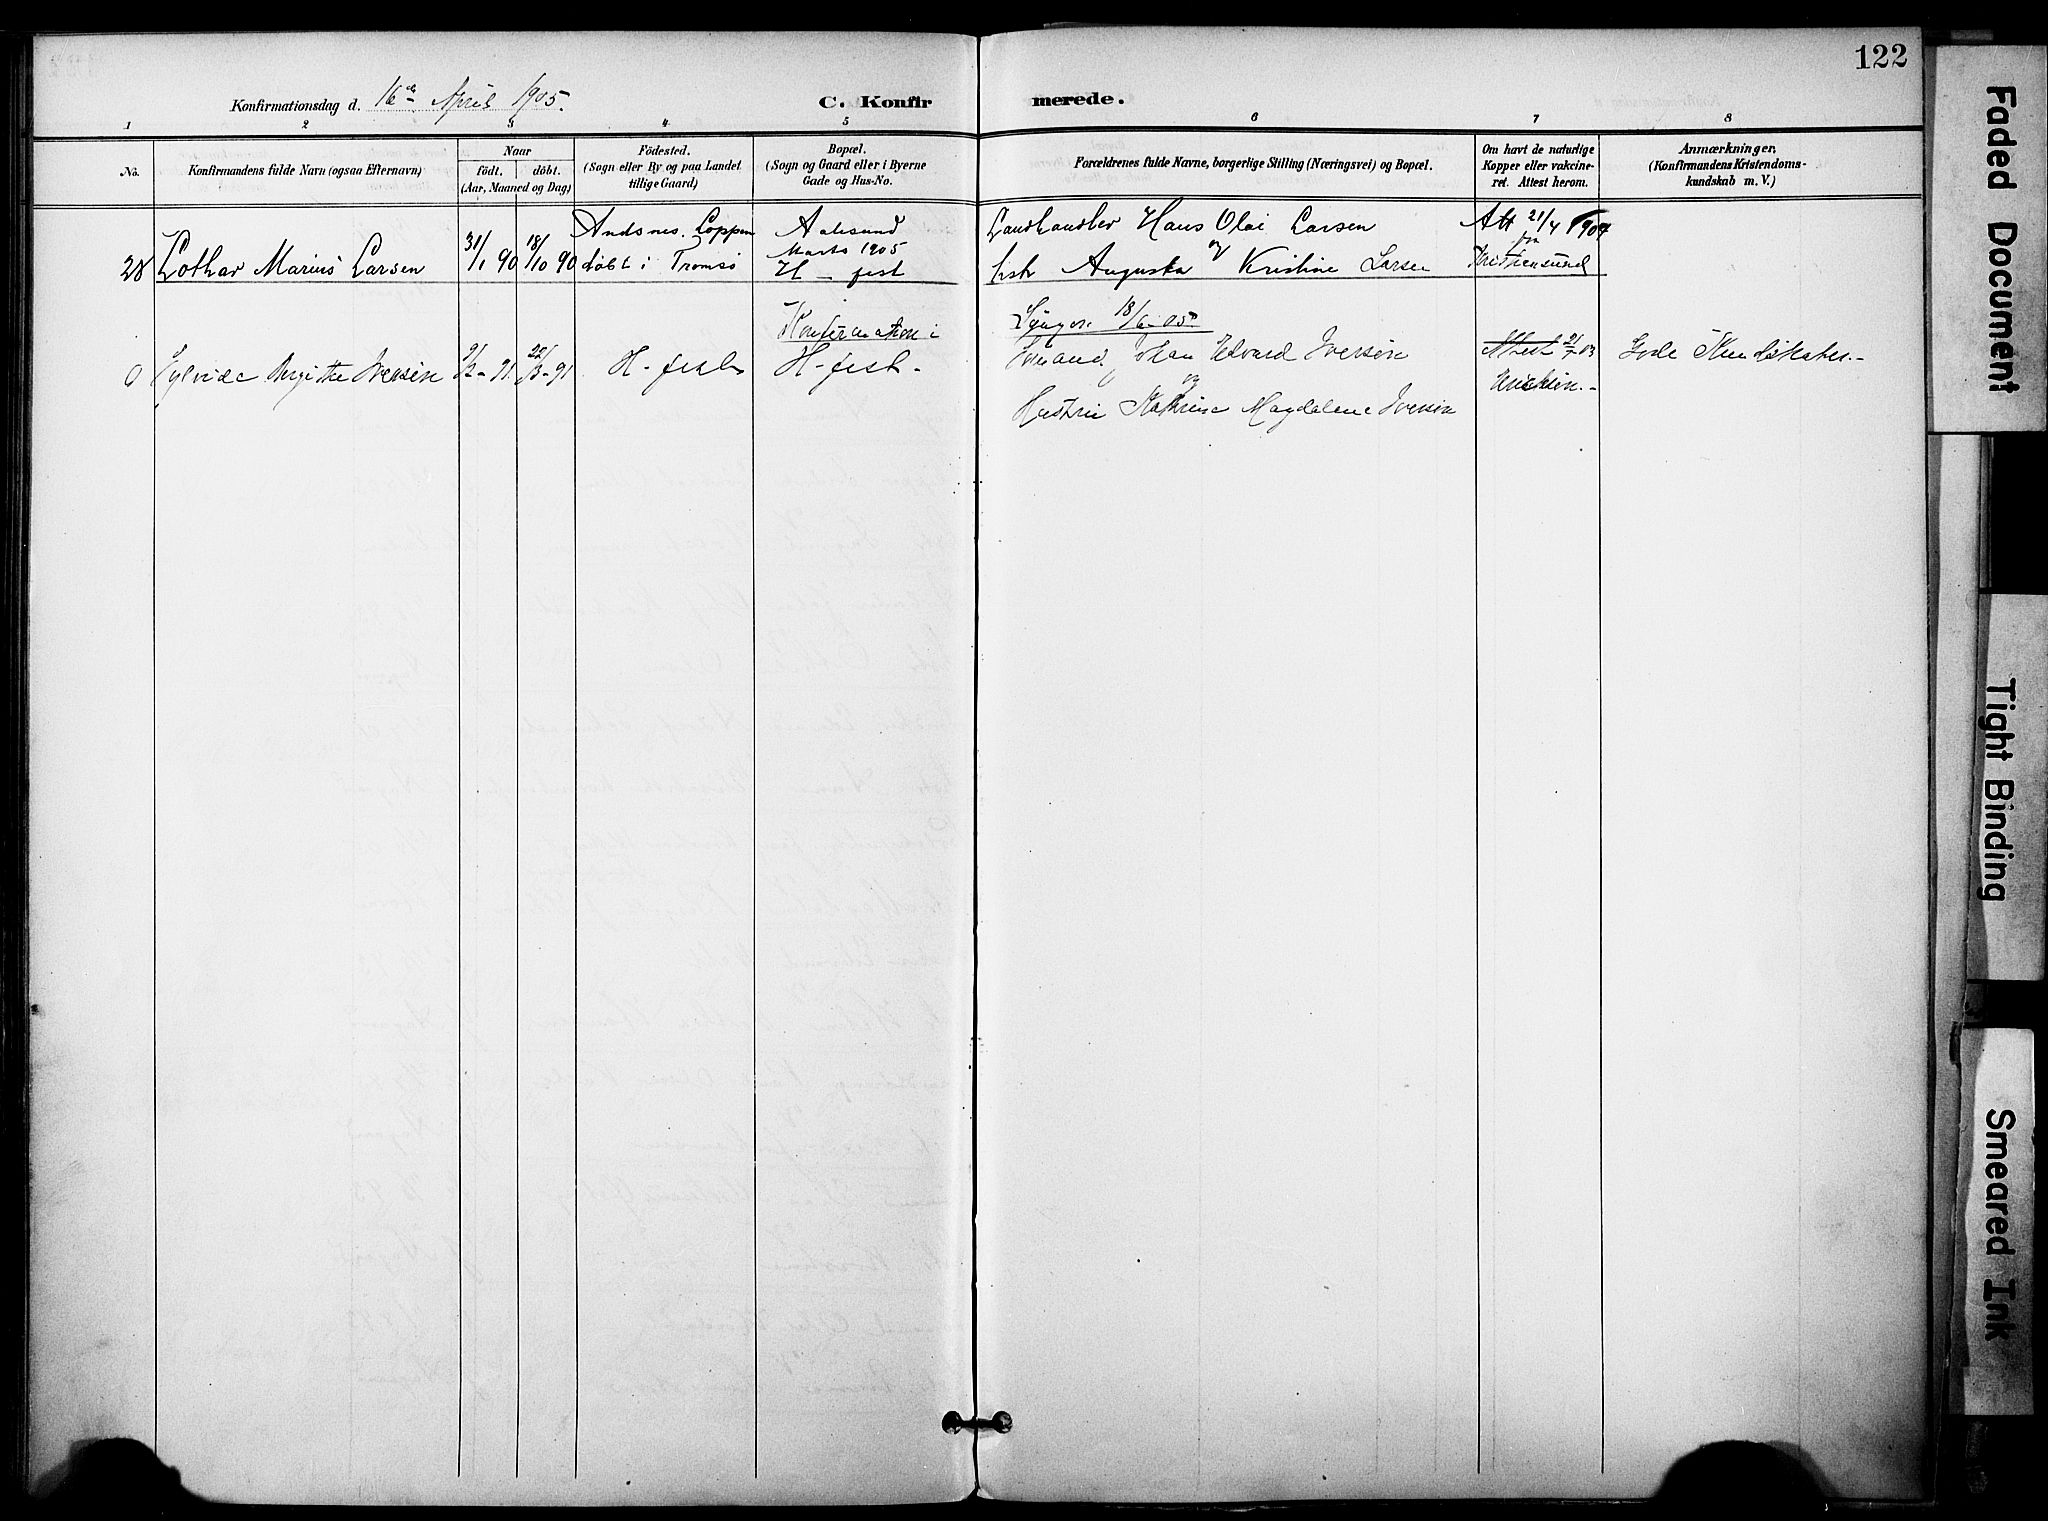 122
Konfirmationsdag d. 16de April 1905.
C. Konfirmerede.
1 2 3 4 5 6 7 8
No.
Konfirmandens fulde Navn (ogsaa Efternavn)
Naar
födt. döbt.
(Aar, Maaned og Dag)
Födested.
(Sogn eller By og paa Landet
tillige Gaard)
Bopæl.
(Sogn og Gaard eller i Byerne
Gade og Hus-No.
Forældrenes fulde Navne, borgerlige Stilling (Næringsvei) og Bopæl.
Om havt de naturlige
Kopper eller vakcine-
ret. Attest herom.
Anmærkninger.
(Konfirmandens Kristendoms-
kundskab m. V.)
28 Lothar Marius Larsen
31/1 90 18/10 90
Andsnes. Loppen
döbt i Tromsö
Aalesund
Marts 1905
H-fest
Landhandler Hans Olai Larsen
og
Augusta Kristine Larsen
Att 21/4 1904
fra
Kristiansund
Konfirmation i
18/6 05
Iversen
9/2 - 91. 22/3 - 91
H-fest
H-fest-
Johan Edvard Iversen
og
Hustru Kathrine Magdalene Iversen
Attest 21/7 03
Erichsen.-
Gode Kundskaber.-
Faded Document
Tight Binding
Smeared Ink